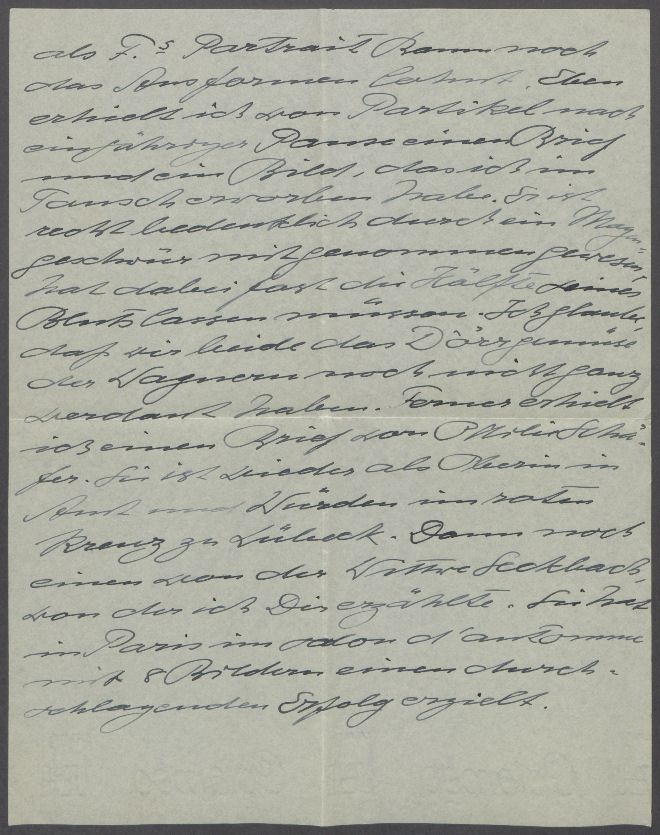 als F.s Portrait kann noch
das Ausformen lohnt. Eben
erhielt ich von Partikel nach
einjähriger Pause einen Brief
und ein Bild, das ich im
Tausch erworben habe. Er ist
recht bedenklich durch ein Magen-
geschwür mitgenommen gewesen,
hat dabei fast die Hälfte seines
Bluts lassen müssen. Ich glaube,
daß wir beide das Dörrgemüse
der Wagnern noch nicht ganz
verdaut haben. Ferner erhielt
ich einen Brief von Schä-
fer. Sie ist wieder als Oberin in
Amt und Würden im roten
Kreuz zu Lübeck. Dann noch
einen von der Wittwe Seckbach,
von der ich Dir erzählte. Sie hat
in Paris im salon d'automne
mit 8 Bildern einen durch-
schlagenden Erfolg erzielt.